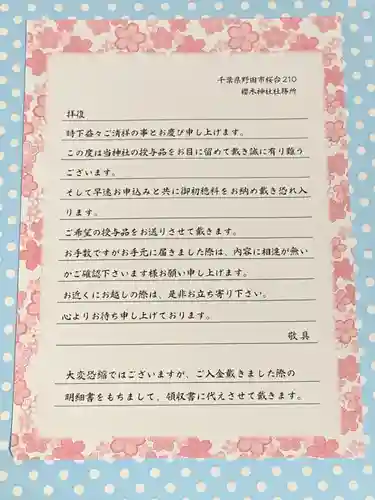 千葉県野田市桜台210
櫻木神社社務所
拝復
時下益々ご清祥の事とお慶び申し上げます。
この度は当神社の授与品をお目に留めて戴き誠に有り難う
ございます。
そして早速お申込みと共に御初穂料をお納め戴き恐れ入
ります。
ご希望の授与品をお送りさせて戴きます。
お手数ですがお手元に届きました際は、内容に相違が無い
かご確認下さいます様お願い申し上げます。
お近くにお越しの際は、是非お立ち寄り下さい。
心よりお待ち申し上げております。
敬具
大変恐縮ではございますが、ご入金戴きました際の
明細書をもちまして、領収書に代えさせて戴きます。